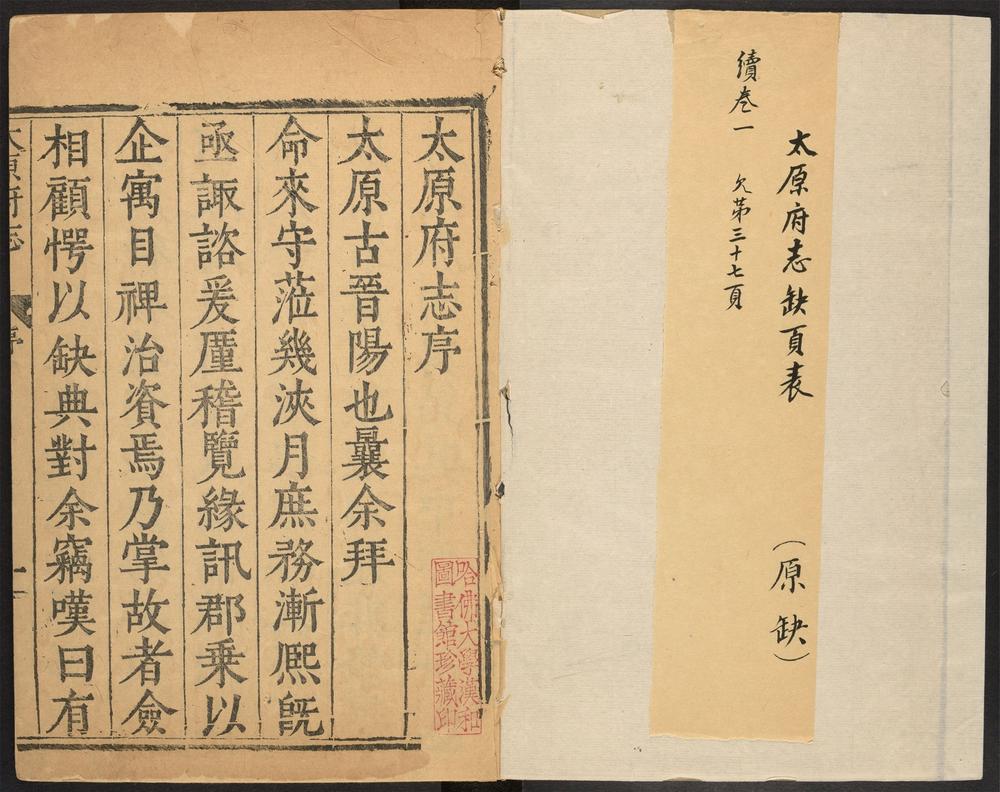 太原府志缺頁表 （原缺）
續卷一 欠第三十七頁
太原府志序
太原古晉陽也曩余拜
命來守蒞幾浹月庶務漸熈旣
亟諏諮爰厪稽覽緣訊郡乗以
企寓目禆治資焉乃掌故者僉
相顧愕以缺典對余竊嘆曰有
太原府志 序 一
哈佛大學漢和
圖書館珍藏印